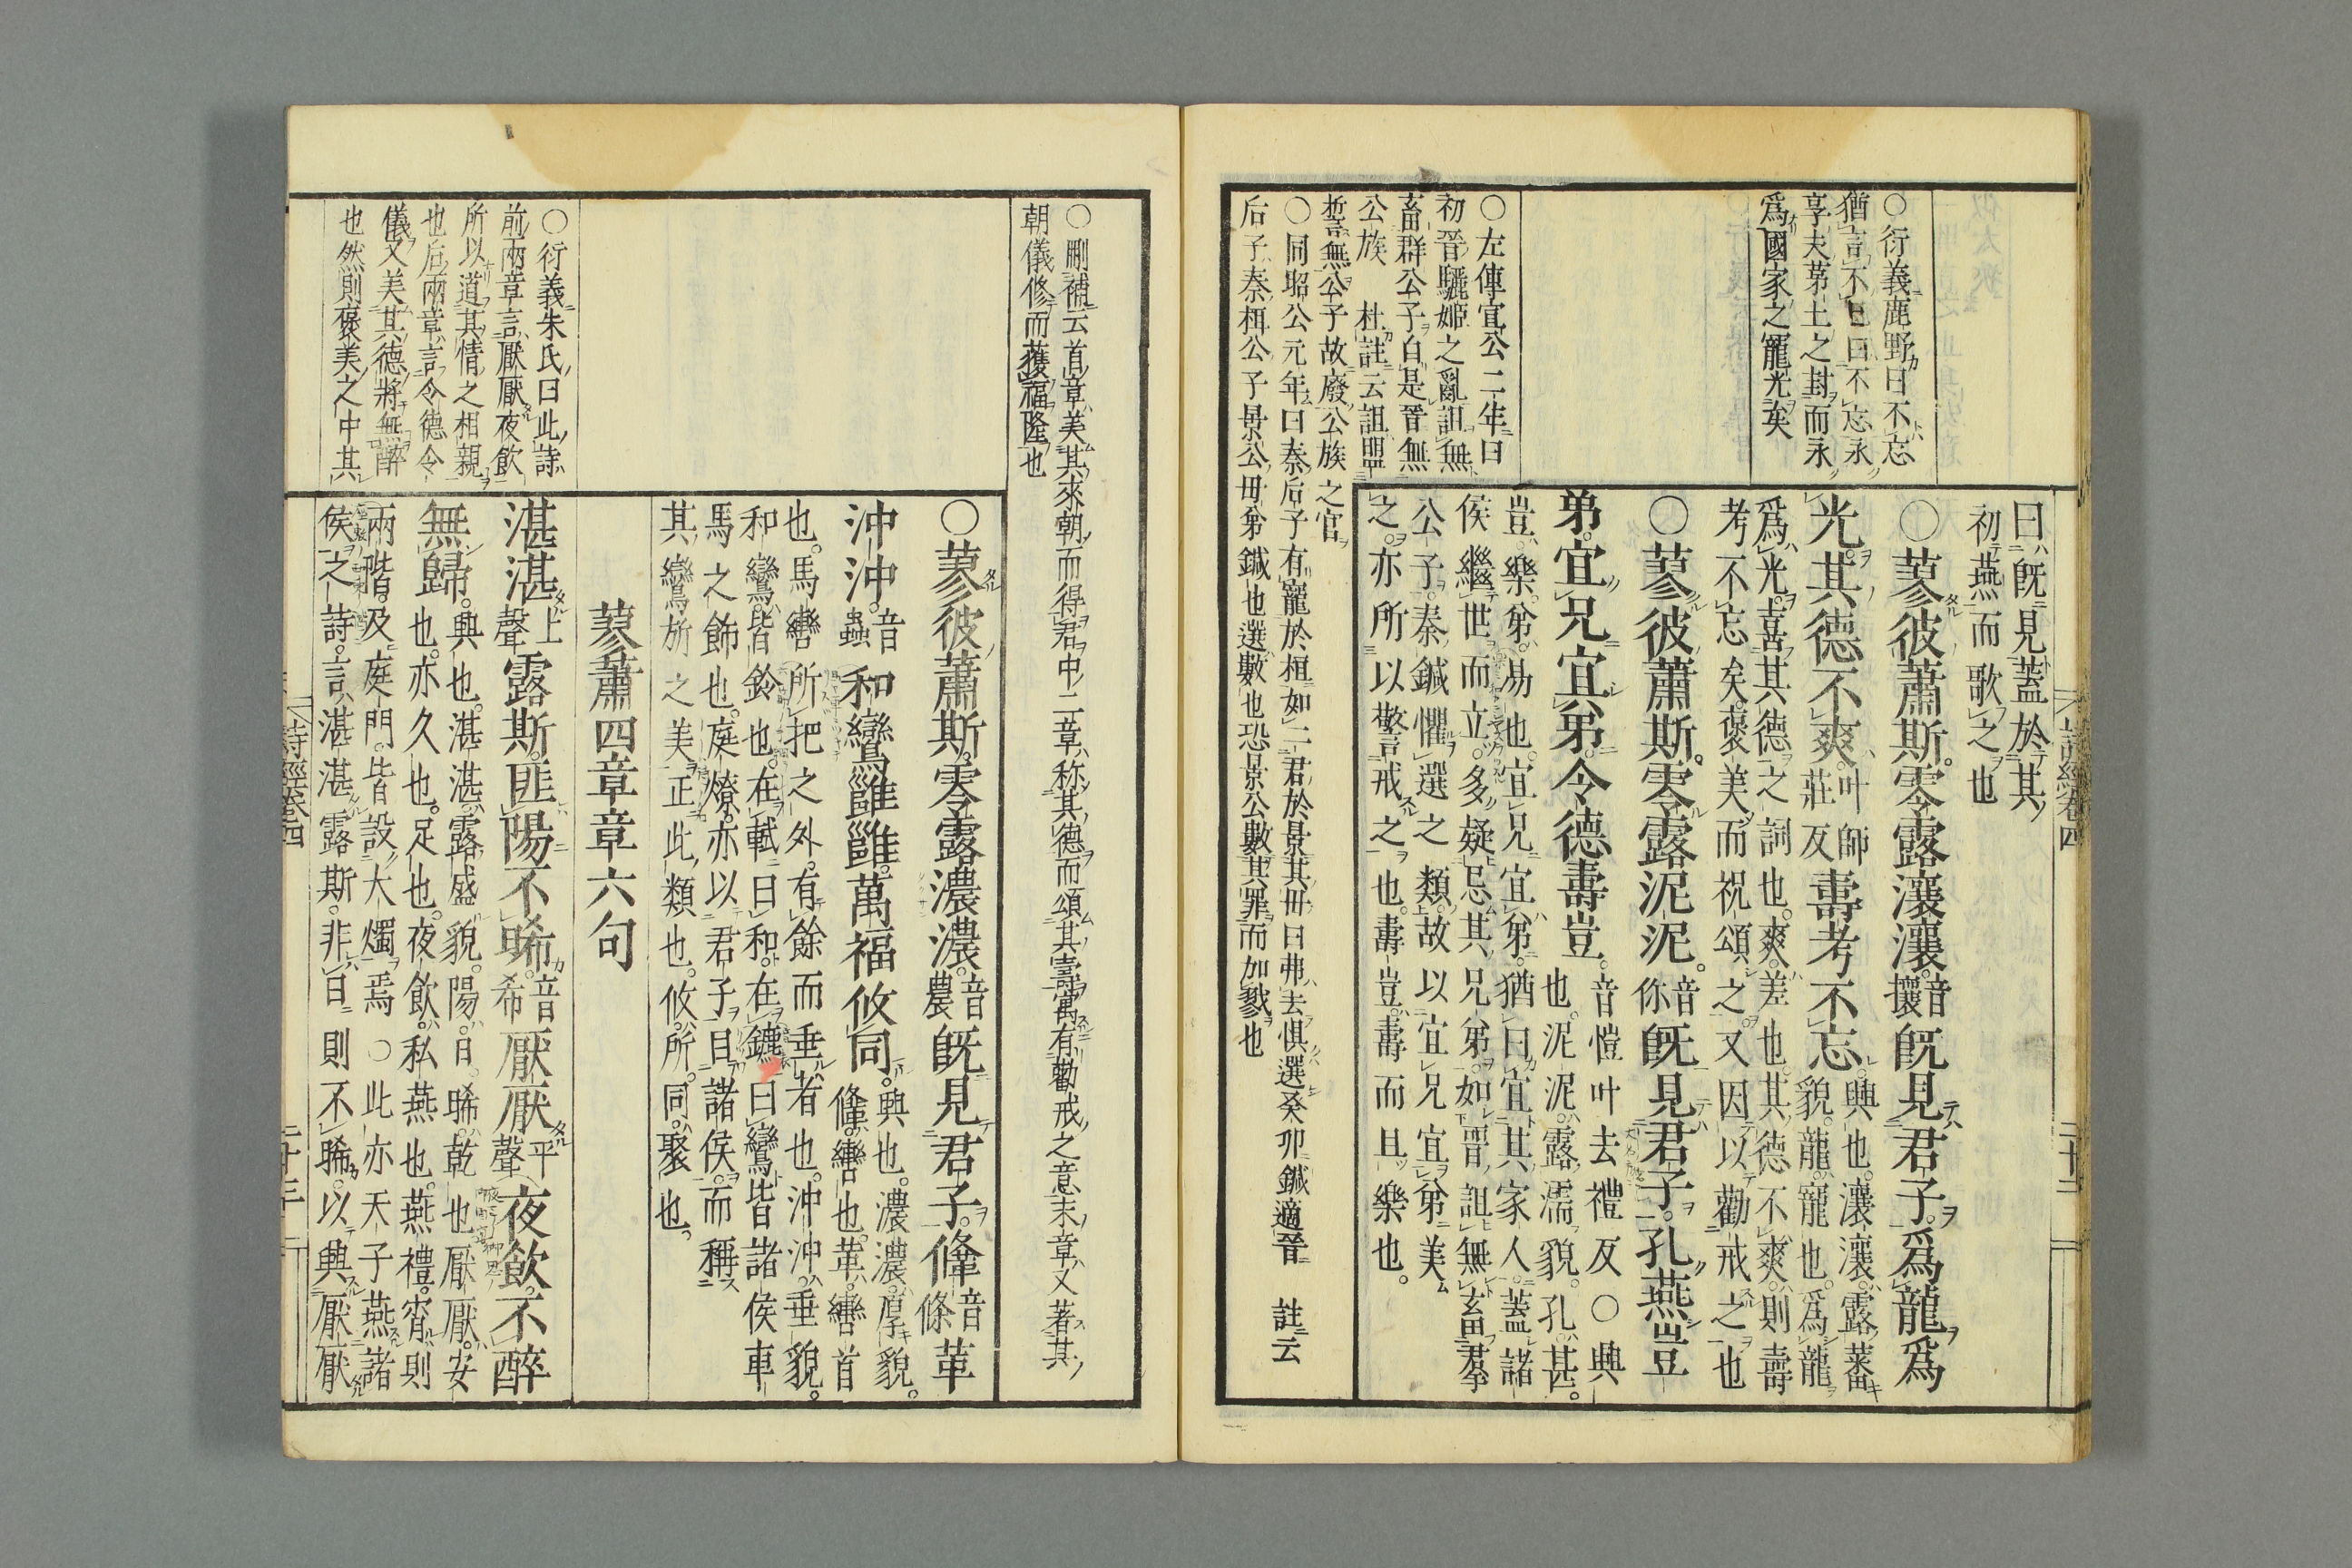 詩經卷四
二十二
曰既見蓋於其
初燕而歌之也
○蓼彼蕭斯零露瀼瀼音攘既見君子爲龍爲
光其德不爽叶師莊反壽考不忘興也瀼瀼露蕃貌龍寵也爲龍
爲光喜其德之詞也爽差也其德不爽則壽
考不忘矣褒美而祝頌之又因以勸戒之也
○蓼彼蕭斯零露泥泥音你既見君子孔燕豈
弟宜兄宜弟令德壽豈音愷叶去禮反○興也泥泥露濡貌孔甚
豈樂弟易也宜兄宜弟猶曰宜其家人蓋諸
侯繼世而立多疑忌其兄弟如晉詛無畜羣
公子秦鍼懼選之類故以宜兄宜弟美
之亦所以警戒之也壽豈壽而且樂也
○衍義鹿野曰不忘
猶言不已曰不忘永
享夫茅土之封而永
爲國家之寵光矣
○左傳宣公二年曰
初晉驪姬之亂詛無
畜群公子自是晉無
公族 杜註云詛盟
誓無公子故廢公族之官
○同昭公元年曰秦后子有寵於桓如二君於景其毋曰弗去懼選癸卯鍼適晉 註云
后子秦桓公子景公毋弟鍼也選數也恐景公數其罪而加戮也
○刪補云首章美其來朝而得君中二章称其德而頌其壽寓有勸戒之意末章又著其
朝儀修而獲福隆也
○蓼彼蕭斯零露濃濃音農既見君子鞗音條革
沖沖音蟲和鸞雝雝萬福攸同興也濃濃厚貌鞗轡也革轡首
也馬轡所把之外有餘而垂者也沖沖垂貌
和鸞皆鈴也在軾曰和在鑣曰鸞皆諸侯車
馬之飾也庭燎亦以君子目諸侯而稱
其鸞旂之美正此類也攸所同聚也
蓼蕭四章章六句
湛湛上聲露斯匪陽不晞音希厭厭平聲夜飲不醉
無歸興也湛湛露盛貌陽日晞乾也厭厭安
也亦久也足也夜飲私燕也燕禮宵則
兩階及庭門皆設大燭焉○此亦天子燕諸
侯之詩言湛湛露斯非日則不晞以興厭厭
○衍義朱氏曰此詩
前兩章言厭厭夜飲
所以道其情之相親
也后兩章言令德令
儀又美其德將無醉
也然則褒美之中其
詩經卷四
二十三